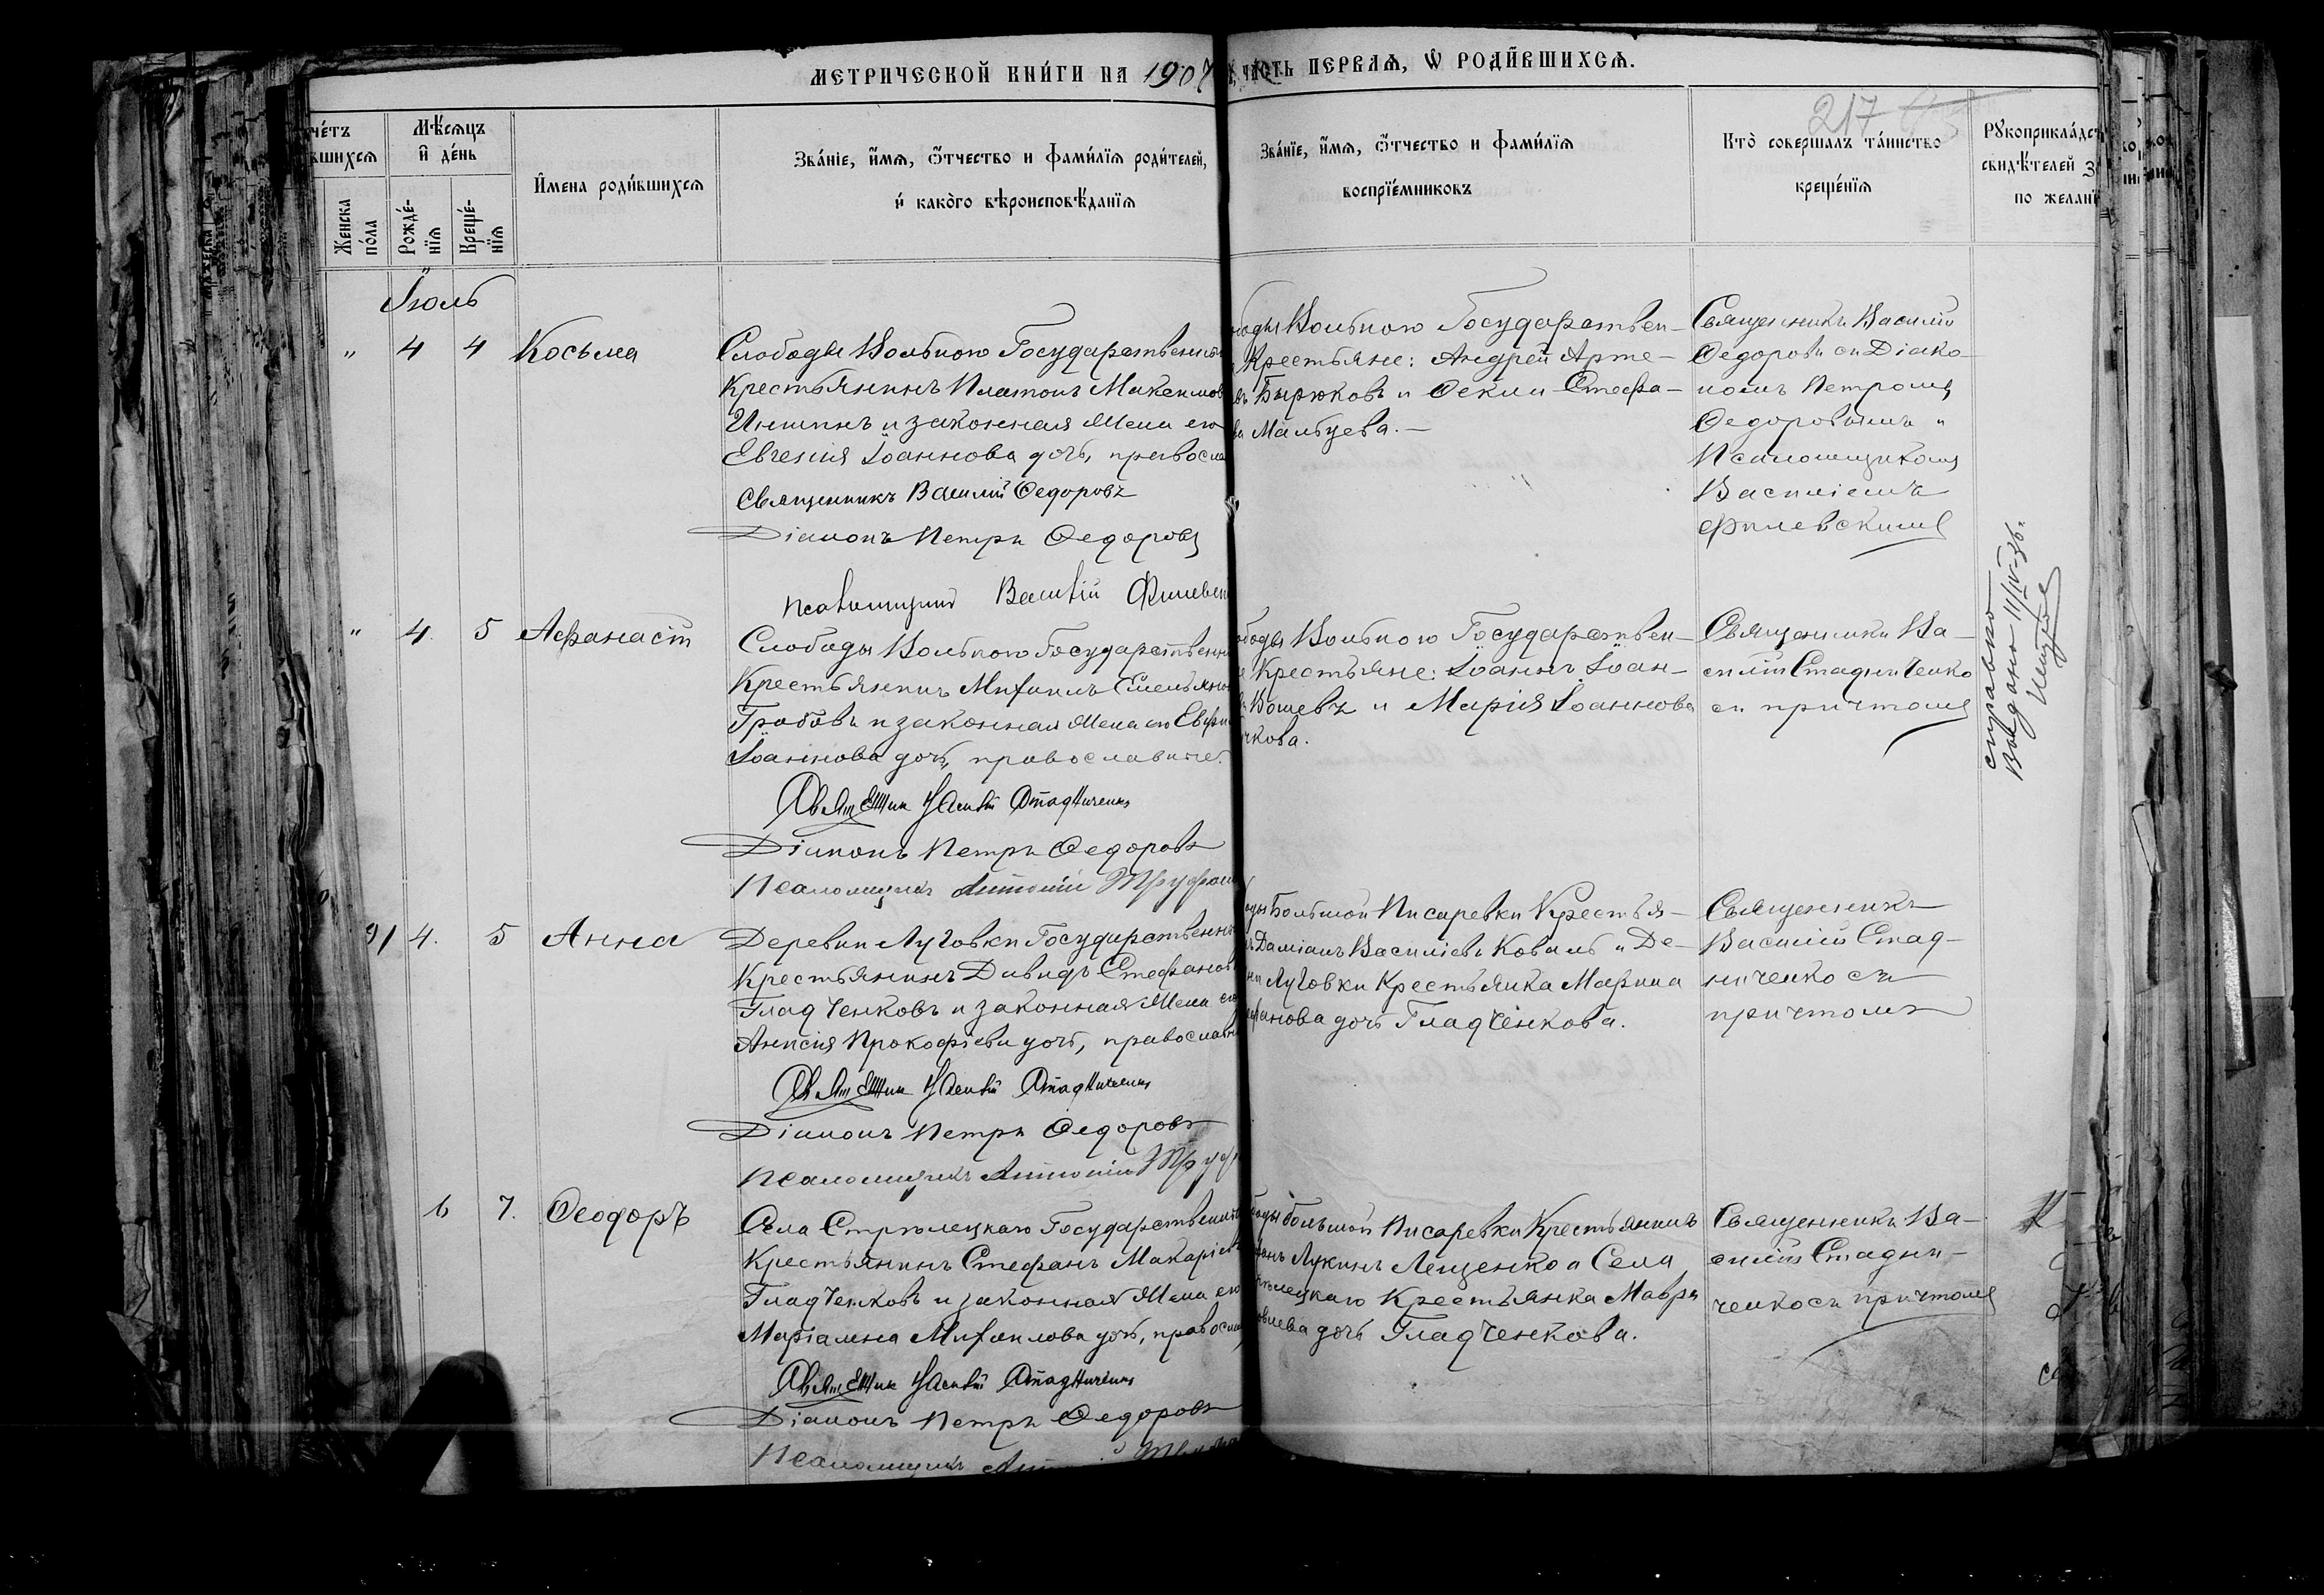 МЕТРИЧЕСКОЙ КНИ́ГИ НА 1907
ЧАСТЬ ПЕРВАѦ, Ѽ РОДИ́ВШИХСѦ.
217
че́тъ
вшихсѧ
Мѣ́сѧцъ
и҆ де́нь
И҆мена роди́вшихсѧ
Зва́нїе, и҆́мѧ, ѻ҆́тчество и фами́лїѧ роди́телей,
и҆ како́го вѣроисповѣ́данїѧ
Зва́нїе, и҆́мѧ, ѻ҆́тчество и фами́лїѧ
воспрїе́мниковъ
Кто̀ совершалъ та́инство
креще́нїѧ
Рꙋкоприкла́дст
свидѣ́телей
по желанї
Женска
по́ла
Рожде́-
нїѧ
Креще́-
нїѧ
Іюль
" 4 4 Косьма
Слободы Вольного Государственн
Крестьянинъ Платонъ Максимов
и законная жена его
Евгенія Іоаннова дочь, правосла
Священникъ Василій Ѳедоровъ
Діаконъ Петръ Ѳедоровъ
Псаломщикъ Василій Филевск
ободы Вольного Государствен-
Крестьяне: Андрей Арте-
въ Бырюковъ и Ѳекла Стефа-
ва Мальцева.-
Священникъ Василій
Ѳедоровъ съ Діако-
номъ Петромъ
Ѳедоровымъ и
Псаломщикомъ
Василіемъ
Филевскимъ
" 4. 5 Аѳанасій
Слободы Вольного Государственн
Крестьянинъ Михаилъ Емельянов
Гробовъ и законная жена его Евфи
Іоаннова дочь, православные.
Священник Василій Стадниченко
Діаконъ Петръ Ѳедоровъ
Псаломщикъ Антоній Труфан
ободы Вольного Государствен-
е Крестьяне: Іоаннъ Іоан-
въ Кошевъ и Марія Іоаннова
чкова.
Священникъ Ва-
силій Стадниченко
съ причтомъ
справлено
Выдано 11/IV-36г.
91 4. 5 Анна
Деревни Луговки Государственн
Крестьянинъ Давидъ Стефанов
Гладченковъ и законная жена его
Анисія Прокофіева дочь, православн
Священник Василій Стадниченко
Діаконъ Петръ Ѳедоровъ
Псаломщикъ Антоній Труф
оды Большой Писаревки Крестья-
ъ Даміанъ Василіевъ Коваль и Де-
ни Луговки Крестьянка Марина
фанова дочь Гладченкова.
Священникъ
Василій Стад-
ниченко съ
причтомъ
6 7. Ѳеодоръ
Села Стрѣлецкаго Государственн
Крестьянинъ Стефанъ Макаріев
Гладченковъ и законная жена его
Маріамна Михаилова дочь, правосл
Священник Василій Стадниченко
Діаконъ Петръ Ѳедоровъ
Псаломщикъ
оды Большой Писаревки Крестьянинъ
фанъ Лукинъ Лещенко и Села
лецкаго Крестьянка Мавра
овлева дочь Гладченкова.
Священникъ Ва-
силій Стадни-
ченко съ причтомъ